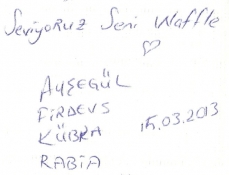 Seviyoruz Seni Waffle
AYŞEGÜL
FİRDEVS
KÜBRA 15.03.2013
RABİA